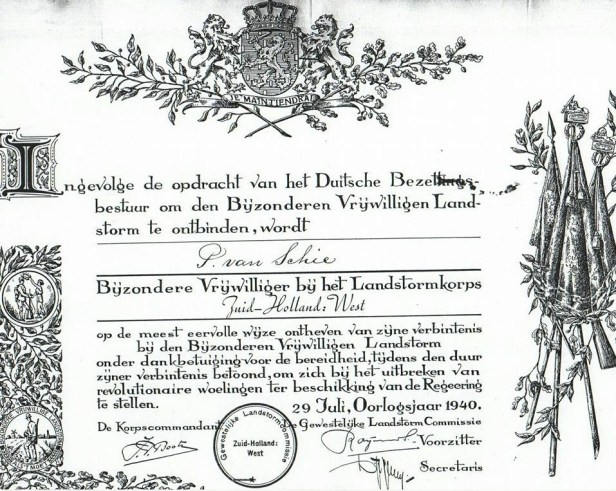 JE MAINTIENDRAI
Ingevolge de opdracht van het Duitsche Bezettings-
bestuur om den Bijzonderen Vrijwilligen Land-
storm te ontbinden, wordt
P. van Schie
Bijzondere Vrijwilliger bij het Landstormkorps
Zuid-Holland: West
op de meest eervolle wijze ontheven van zijne verbintenis
bij den Bijzonderen Vrijwilligen Landstorm
onder dankbetuiging voor de bereidheid, tijdens den duur
zijner verbintenis betoond, om zich bij het uitbreken van
revolutionaire woelingen ter beschikking van de Regeering
te stellen.
29 Juli, Oorlogsjaar 1940.
De Korpscommandant
Gewestelijke Landstormcommissie
Zuid-Holland:
West
De Gewestelijke Landstorm Commissie
Voorzitter
Secretaris